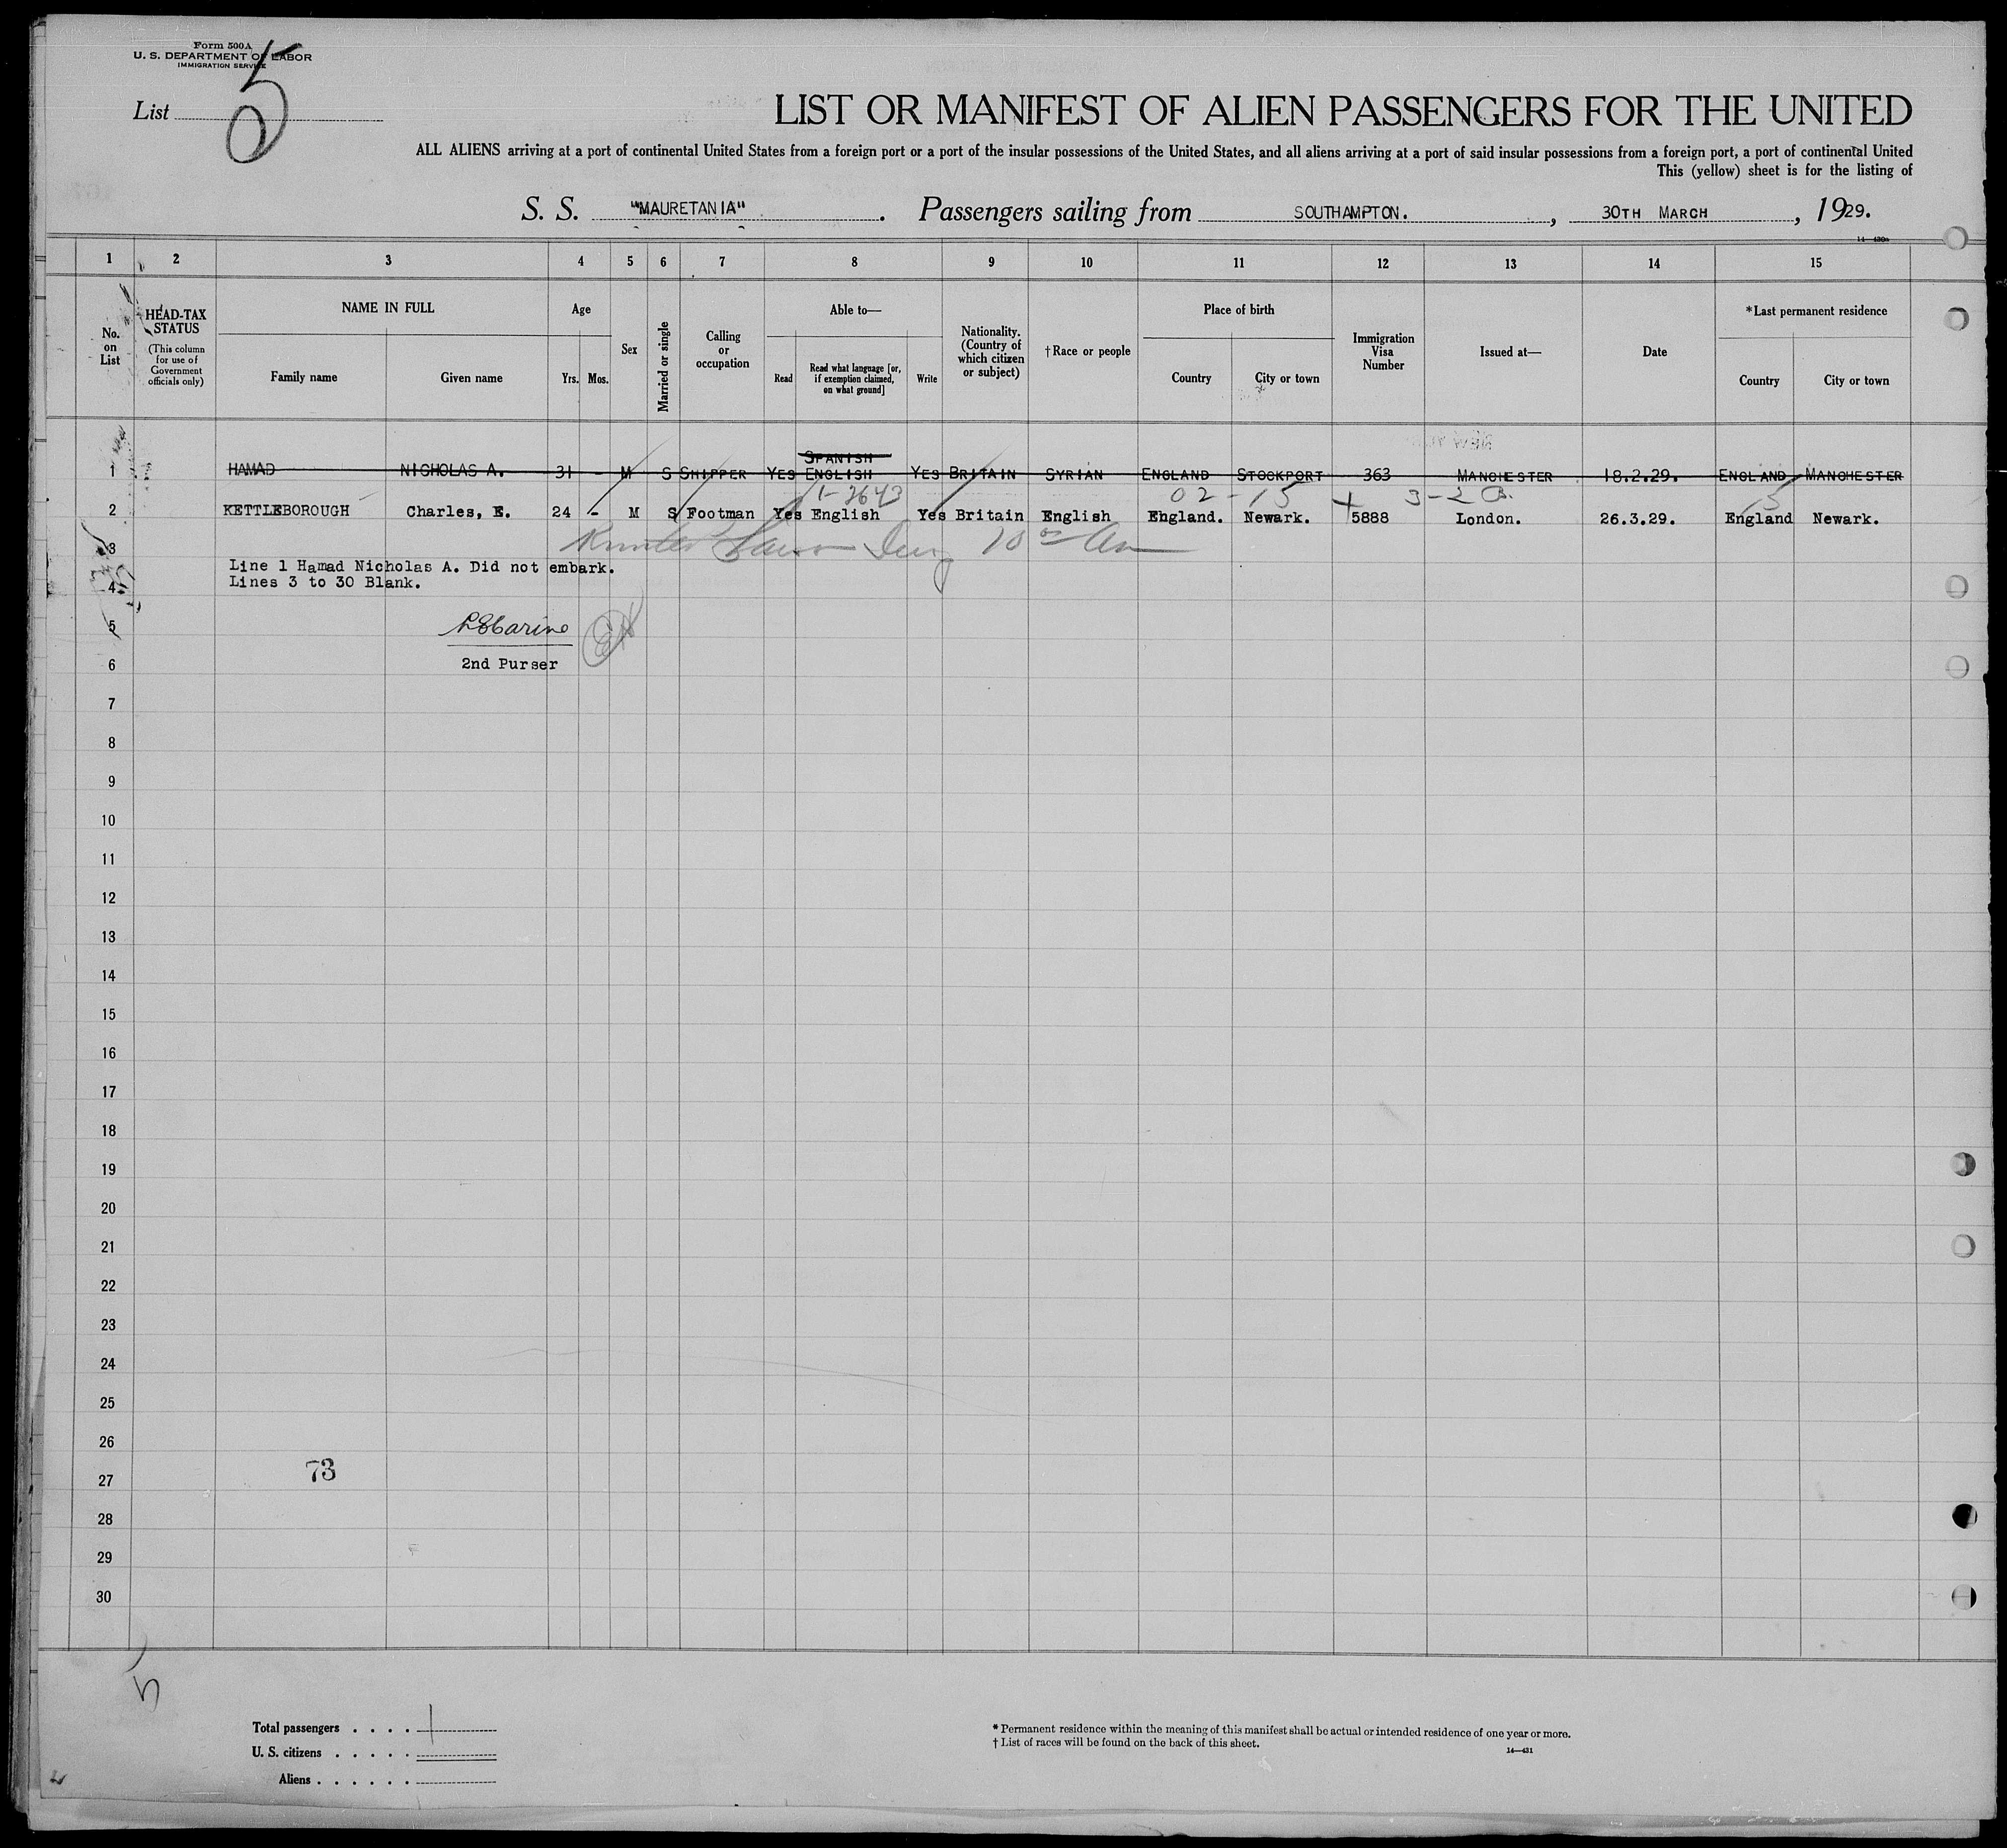 Form 500A
U. S. DEPARTMENT OF LABOR
IMMIGRATION SERVICE
List 5
LIST OR MANIFEST OF ALIEN PASSENGERS FOR THE UNITED
ALL ALIENS arriving at a port of continental United States from a foreign port or a port of the insular possessions of the United States, and all aliens arriving at a port of said insular possessions from a foreign port, a port of continental United
This (yellow) sheet is for the listing of
S. S. "MAURETANIA". Passengers sailing from SOUTHAMPTON. , 30TH MARCH , 1929.
14—430a
1 2 3 4 5 6 7 8 9 10 11 12 13 14 15
No. on List
HEAD-TAX STATUS
(This column for use of Government officials only)
NAME IN FULL
Family name Given name
Age
Yrs. Mos.
Sex
Married or single
Calling or occupation
Able to—
Read
Read what language [or, if exemption claimed, on what ground]
Write
Nationality. (Country of which citizen or subject)
†Race or people
Place of birth
Country City or town
Immigration Visa Number
Issued at—
Date
*Last permanent residence
Country City or town
SPANISH
1 HAMAD NICHOLAS A. 31 - M S SHIPPER YES ENGLISH YES BRITAIN SYRIAN ENGLAND STOCKPORT 363 MANCHESTER 18.2.29. ENGLAND MANCHESTER
1-2643 02-15 3-2 15
2 KETTLEBOROUGH Charles, E. 24 - M S Footman Yes English Yes Britain English England. Newark. 5888 London. 26.3.29. England Newark.
3
Line 1 Hamad Nicholas A. Did not embark.
4
Lines 3 to 30 Blank.
5
6
2nd Purser
7
8
9
10
11
12
13
14
15
16
17
18
19
20
21
22
23
24
25
26
73
27
28
29
30
5
Total passengers . . . . 1
U. S. citizens . . . . .
Aliens . . . . . .
* Permanent residence within the meaning of this manifest shall be actual or intended residence of one year or more.
† List of races will be found on the back of this sheet.
14—431